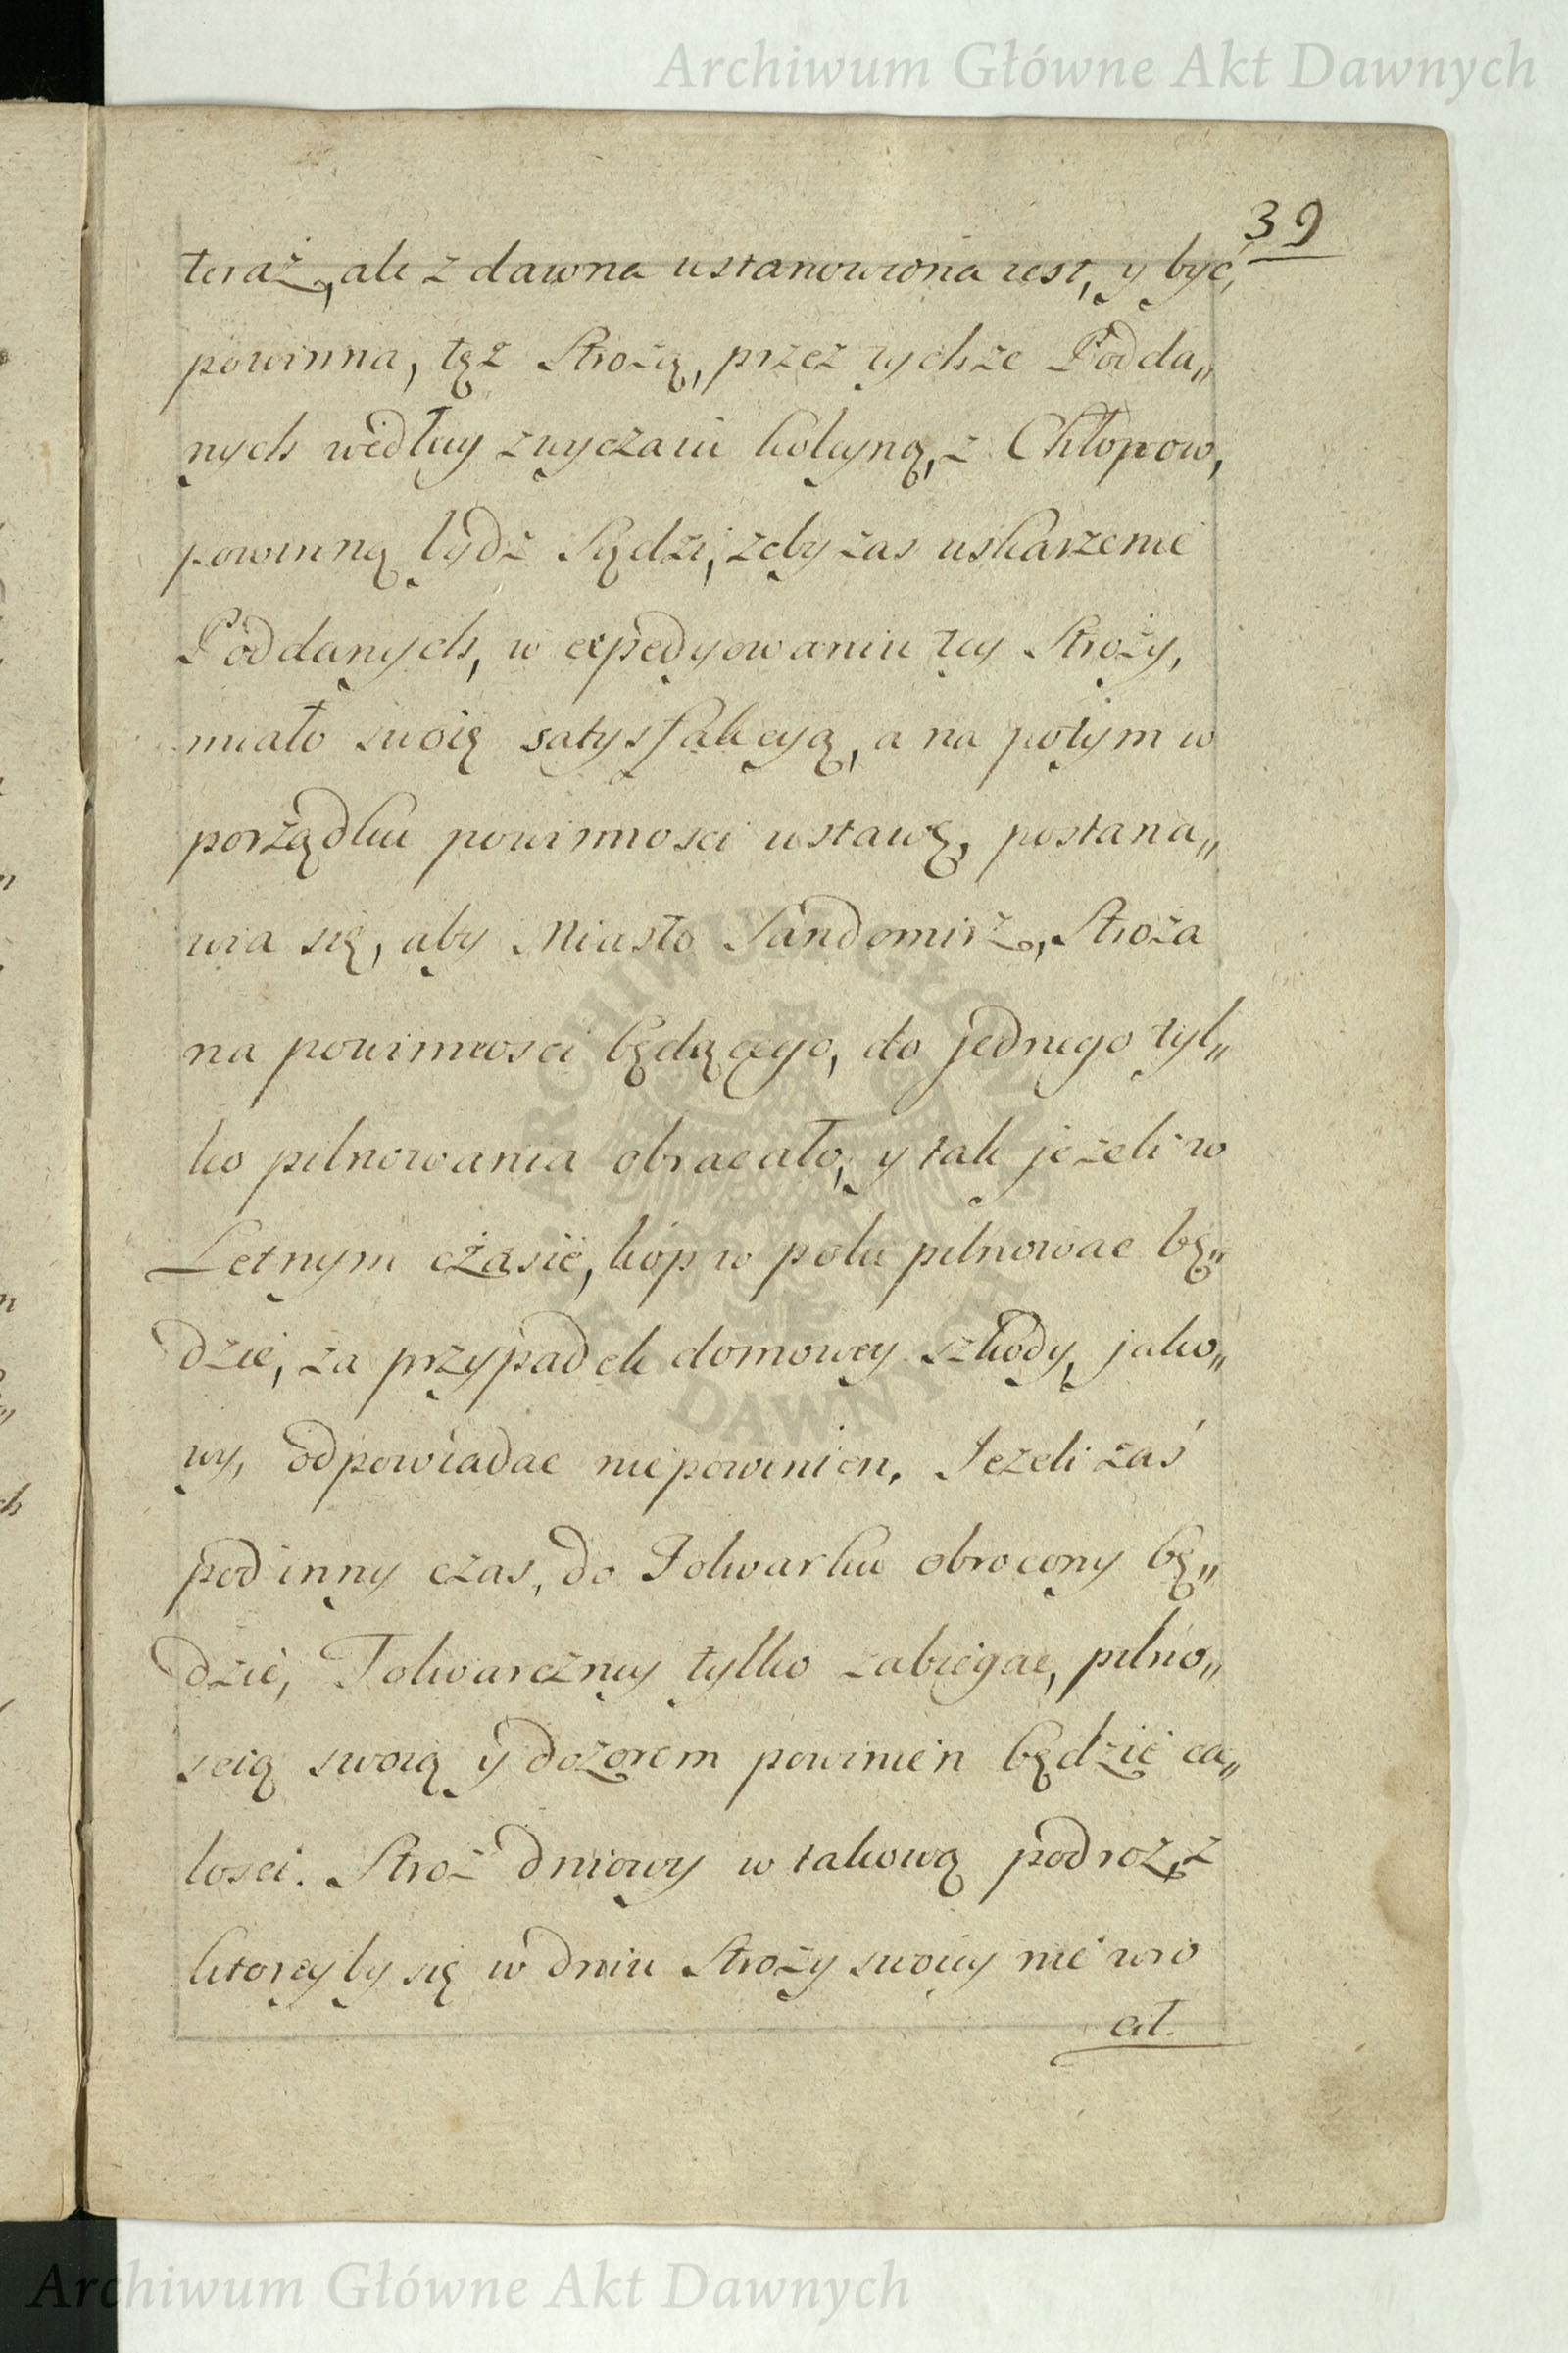 Archiwum Główne Akt Dawnych
39
teraz, ale z dawna ustanowiona iest, y być,
powinna, tęż Strożą, przez tychże Podda„
nych według zwyczaiu koleyną, z Chłopow,
powinną bydź Sądzi, żeby zas uskarzenie
Poddanych, w expedyowaniu tey Stroży,
miało swoię satysfakcyą, a na potym w
porządku powinnosci ustawę, postana„
wia się, aby Miasto Sandomirz, Stroża
na powinnosci będącego, do jednego tyl„
ko pilnowania obracało, y tak jeżeli w
Letnym czasie, kóp w polu pilnowac bę„
dzie, za przypadek domowey szkody, jako„
wy, odpowiadac niepowinien. Jeżeli zaś
pod inny czas, do Folwarku obrocony bę„
dzie, Folwarczney tylko zabiegac, pilno„
scią swoią y dozorem powinien będzie ca„
łosci. Stroż dniowy w takową podroż, z
ktoreyby się w dniu Stroży swoiey nie wro
cił.
ARCHIWUM GŁÓWNE AKT DAWNYCH
Archiwum Główne Akt Dawnych